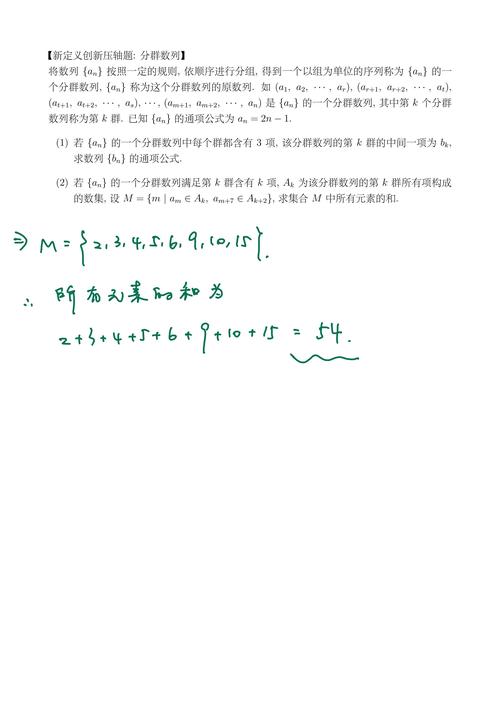 【新定义创新压轴题: 分群数列】
将数列 {aₙ} 按照一定的规则, 依顺序进行分组, 得到一个以组为单位的序列称为 {aₙ} 的一
个分群数列, {aₙ} 称为这个分群数列的原数列. 如 (a₁, a₂, ⋯, aᵣ), (aᵣ₊₁, aᵣ₊₂, ⋯, aₜ),
(aₜ₊₁, aₜ₊₂, ⋯, aₛ), ⋯, (aₘ₊₁, aₘ₊₂, ⋯, aₙ) 是 {aₙ} 的一个分群数列, 其中第 k 个分群
数列称为第 k 群. 已知 {aₙ} 的通项公式为 aₙ = 2n − 1.
(1) 若 {aₙ} 的一个分群数列中每个群都含有 3 项, 该分群数列的第 k 群的中间一项为 bₖ,
求数列 {bₙ} 的通项公式.
(2) 若 {aₙ} 的一个分群数列满足第 k 群含有 k 项, Aₖ 为该分群数列的第 k 群所有项构成
的数集, 设 M = {m | aₘ ∈ Aₖ, aₘ₊₇ ∈ Aₖ₊₂}, 求集合 M 中所有元素的和.
⇒ M = {2, 3, 4, 5, 6, 9, 10, 15}.
∴ 所有元素的和为
2+3+4+5+6+9+10+15 = 54.